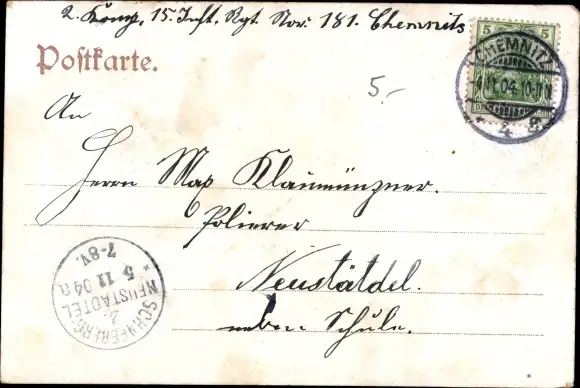 2. Komp. 15. Inft. Rgt. Nov: 181. Chemnitz
Postkarte.
5 5
CHEMNITZ
11.04.10-11
4
5.-
An
Herrn Max Klaumünzner.
Polierer
Neustädtel.
neben Schule.
SCHNEEBERG-
NEUSTÄDTEL
5 11 04
7-8V.